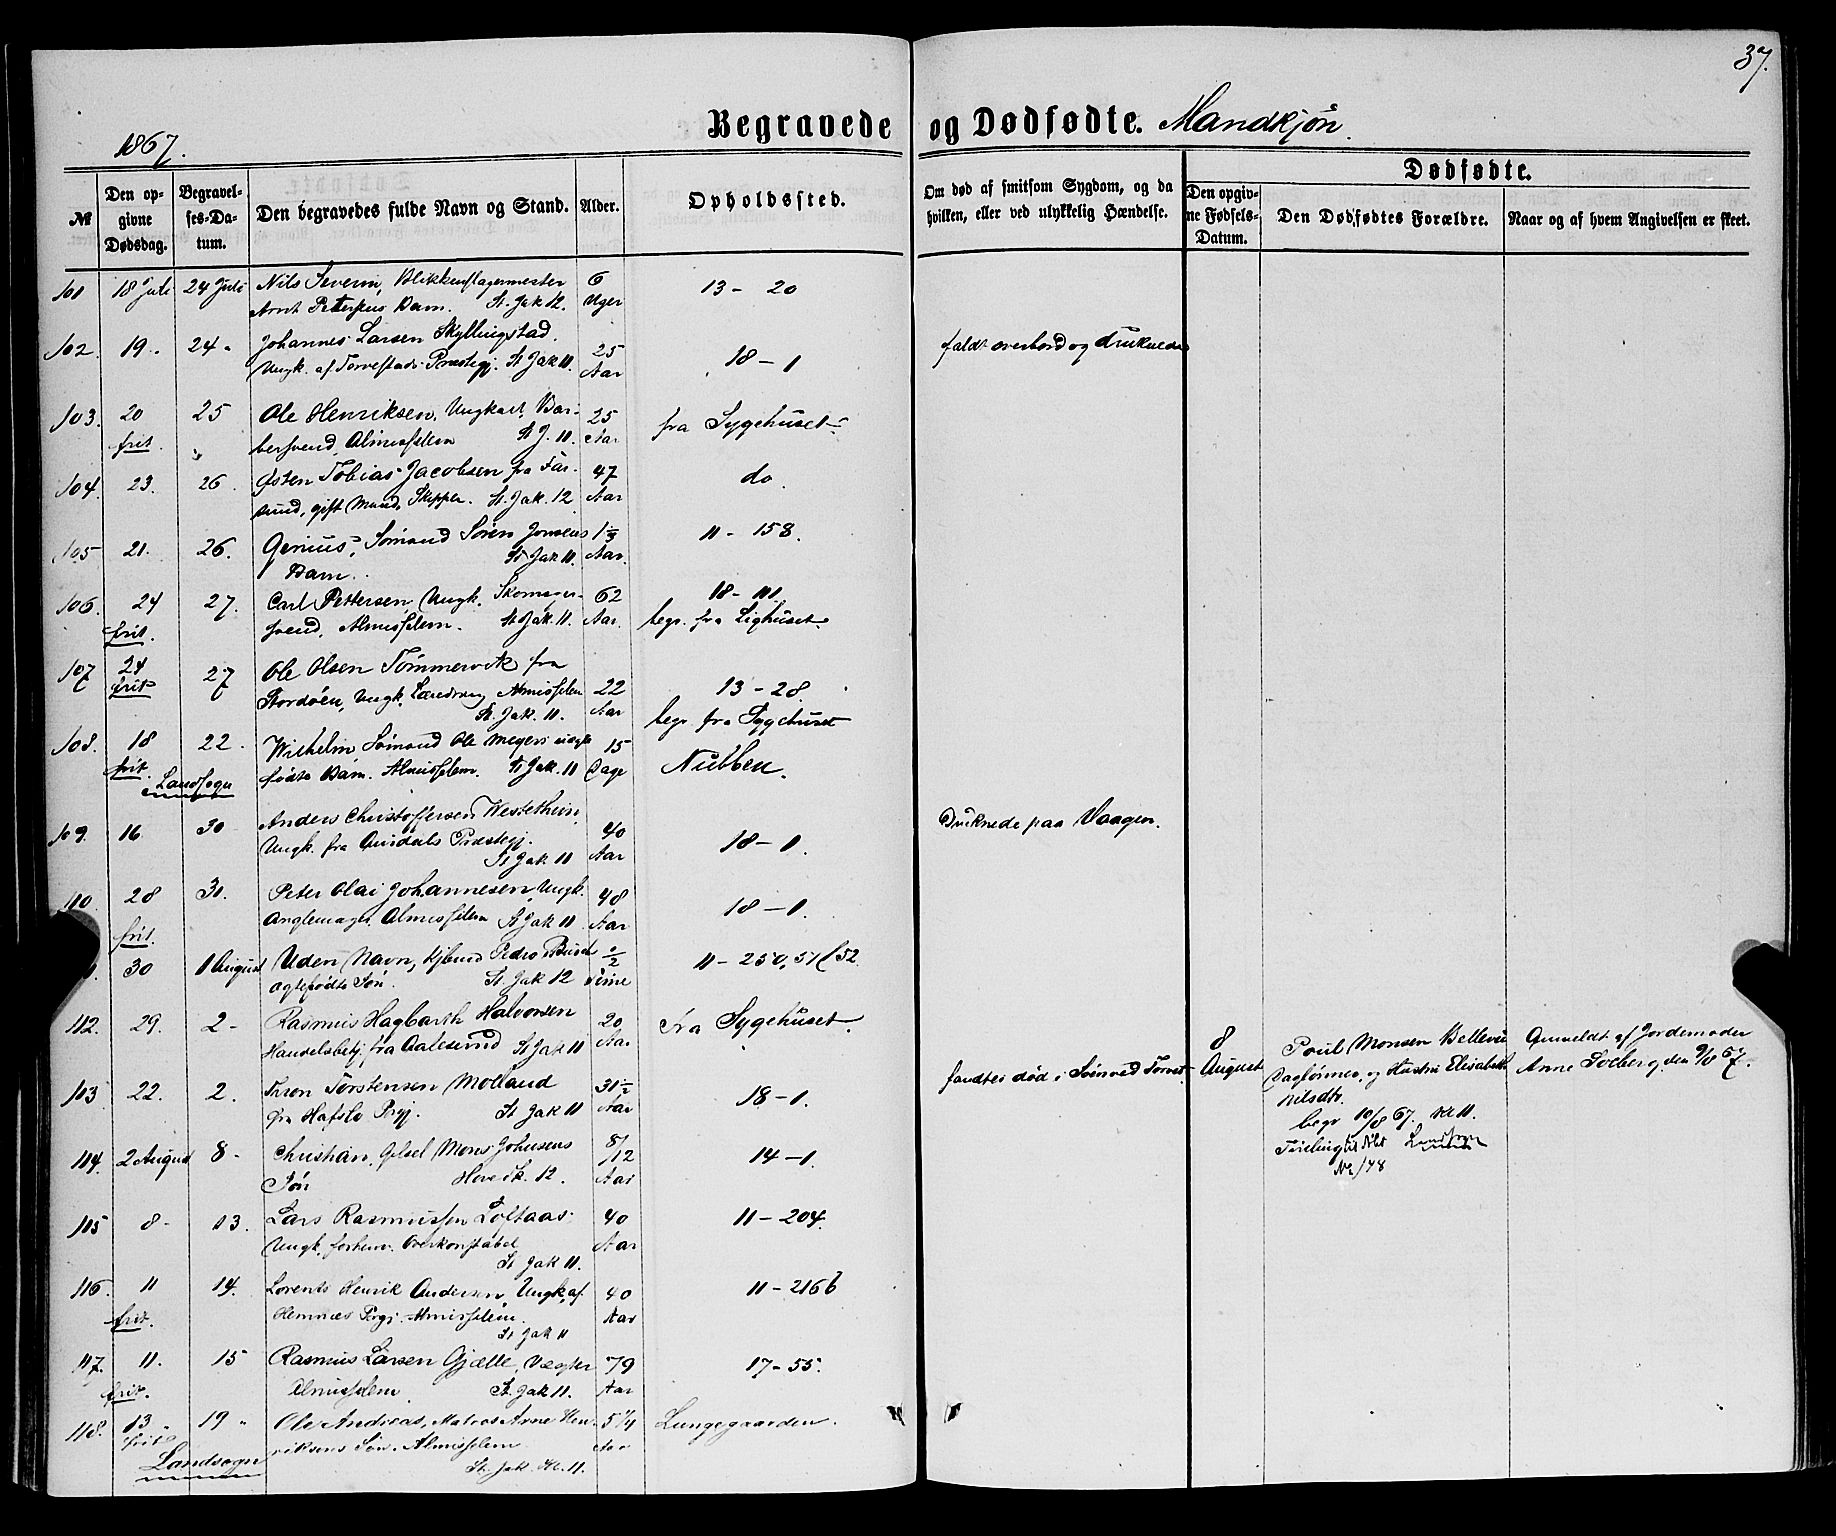 37.
1867.
Begravede og Dødfødte. Mandkjøn.
Dødfødte.
№
Den opgivne Dødsdag.
Begravelses-Datum.
Den begravedes fulde Navn og Stand.
Alder.
Opholdssted.
Om død af smitsom Sygdom, og da hvilken, eller ved ulykkelig Hændelse.
Den opgivne Fødsels-Datum.
Den Dødfødtes Forældre.
Naar og af hvem Angivelsen er skeet.
101 18 Juli 24 Juli Nils Severin, Blikkenslagermester 6
Arnt Barn. St. Jak 12. Uger 13 - 20
102. 19. 24 " Johannes Larsen Skyllingstad. 25
Ungk. af Torvestads Præstegj. St Jak 11. Aar 18 - 1 faldt overbord og druknede
103. 20 25 Ole Henriksen, Ungkarl, Bar- 25
frit. " bersvend, Almisselem St J. 11. Aar fra Sygehuset.
104. 23. 26. Østen Tobias Jacobsen fra Far- 47 do.
sund, gift Mand, Skipper. St. Jak. 12 Aar
105 21. 26. Sømand Søren Jonsens
Barn. St Jak 11. Aar. 11 - 158.
106. 24 27. Carl Pettersen, Ungk. Skomager- 62
frit. svend, Almisselem. St Jak 11. Aar. begr. fra Lighuset.
107 24 27 Ole Olsen Tømmervik fra
frit Stordøen, Ungk. Almisselem 22 13 - 28.
St. Jak. 11. Aar begr. fra Sygehuset
108. 18 22. Wilhelm Sømand Ole Meyers uægte 15
frit. fødte Barn. Almisselem. St Jak. 11 Dage Nubben.
Landsogn
109. 16 30 Anders Christoffersen
Ungk. fra Præstegj. 40 18 - 1. Druknede paa Vaagen.
St Jak 11 Aar
110. 28 30. Peter Olai Johannesen, Ungk. 48
Anglemager, Almisselem St Jak 11 Aar 18 - 1.
frit.
30 1 August Uden Navn, Kjbmd Pedro ½
ægtefødte Søn. St. Jak 12 Time 11 - 250, 51 & 52
112. 29. 2 - Rasmus Hagbarth Halvorsen 20 fra Sygehuset.
Handelsbetj. fra Aalesund St Jak 11 Aar
103 22. 2. Torstensen Molland 31½
fra Hafslo Prgj. St Jak 11 Aar 18 - 1. fandtes død i Søen ved Torvet
8 August
Poul Monsen Bellevue
Daglønner, og Hustru Elisabeth
Nilsdtr.
begr 10/8 67. Kl 11.
Landsogn
№ 148
Anmeldt af Jordemoder
Anne Solberg, den 9/8 67.
114. 2 August 8 - Christian, Mons Johnsens 8/12
Søn 12. Aar 14 - 1.
115 8 - 13. Lars Rasmussen Loftaas 40 11 - 204.
Ungk. forhenv. Overkonstabel Aar
St Jak 11.
116. 11 14. Lorents Henrik Andersen, Ungk. af 40 11 - 216 b
frit. Hemnæs Prgj. Almisselem. Aar
St Jak 11
117. 11. 15 Rasmus Larsen Gjælle, Vægter 79 17 - 55.
frit. Almisselem St. Jak 11. Aar
118. 13 " 19 " Ole Andreas, Matros Arne Hen- 5 ¼ Lungegaarden.
frit riksens Søn. Almisselem Aar
Landsogn St. Jak. Kl. 11.